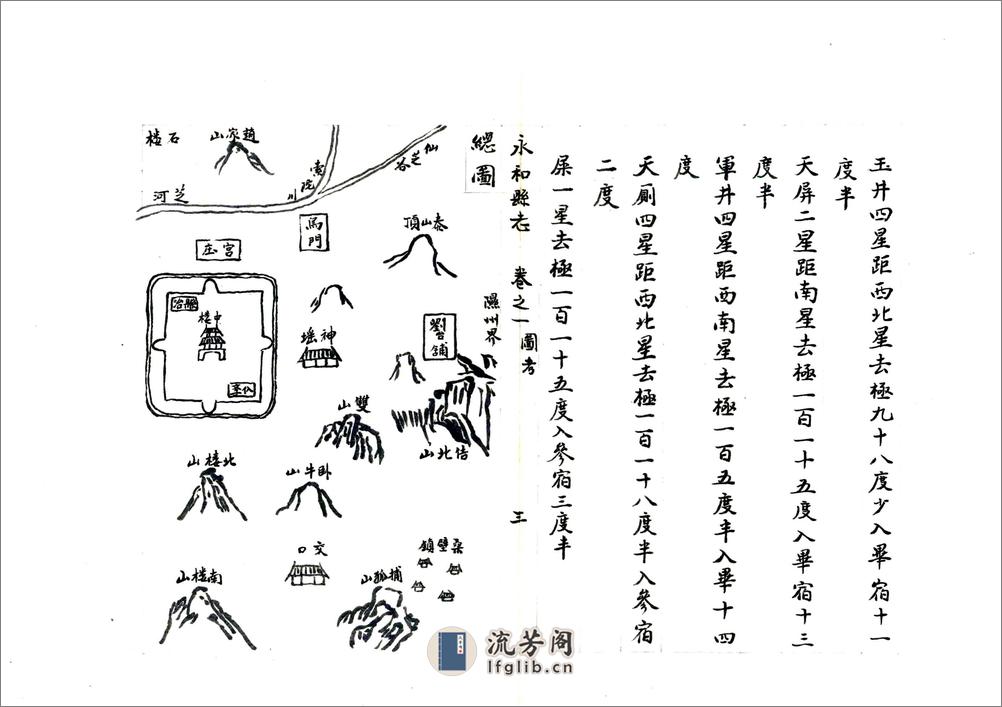 玉井四星距西北星去極九十八度少入畢宿十一
度半
天屏二星距南星去極一百一十五度入畢宿十三
度半
軍井四星距西南星去極一百五度半入畢十四
度
天厠四星距西北星去極一百一十八度半入參宿
二度
屎一星去極一百一十五度入參宿三度半
永和縣志 卷之一 圖考 三
總圖
仙芝谷
索陀川
趙家山
石楼
芝河
馬門
宮庄
泰山頂
隰州界
縣治
中楼
神堖
雙山
佶北山
北楼山
卧牛山
交口
桑壁鎮
南楼山
捕狐山
流芳阁
lfglib.cn